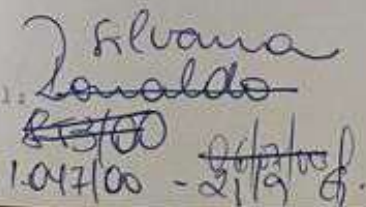 Silvana
Ronaldo
853/00
1.047/00 - 21/9